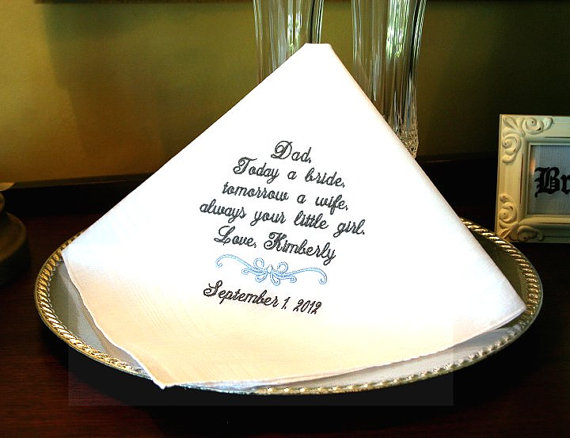 Dad,
Today a bride,
tomorrow a wife,
always your little girl.
Love, Kimberly
September 1, 2012